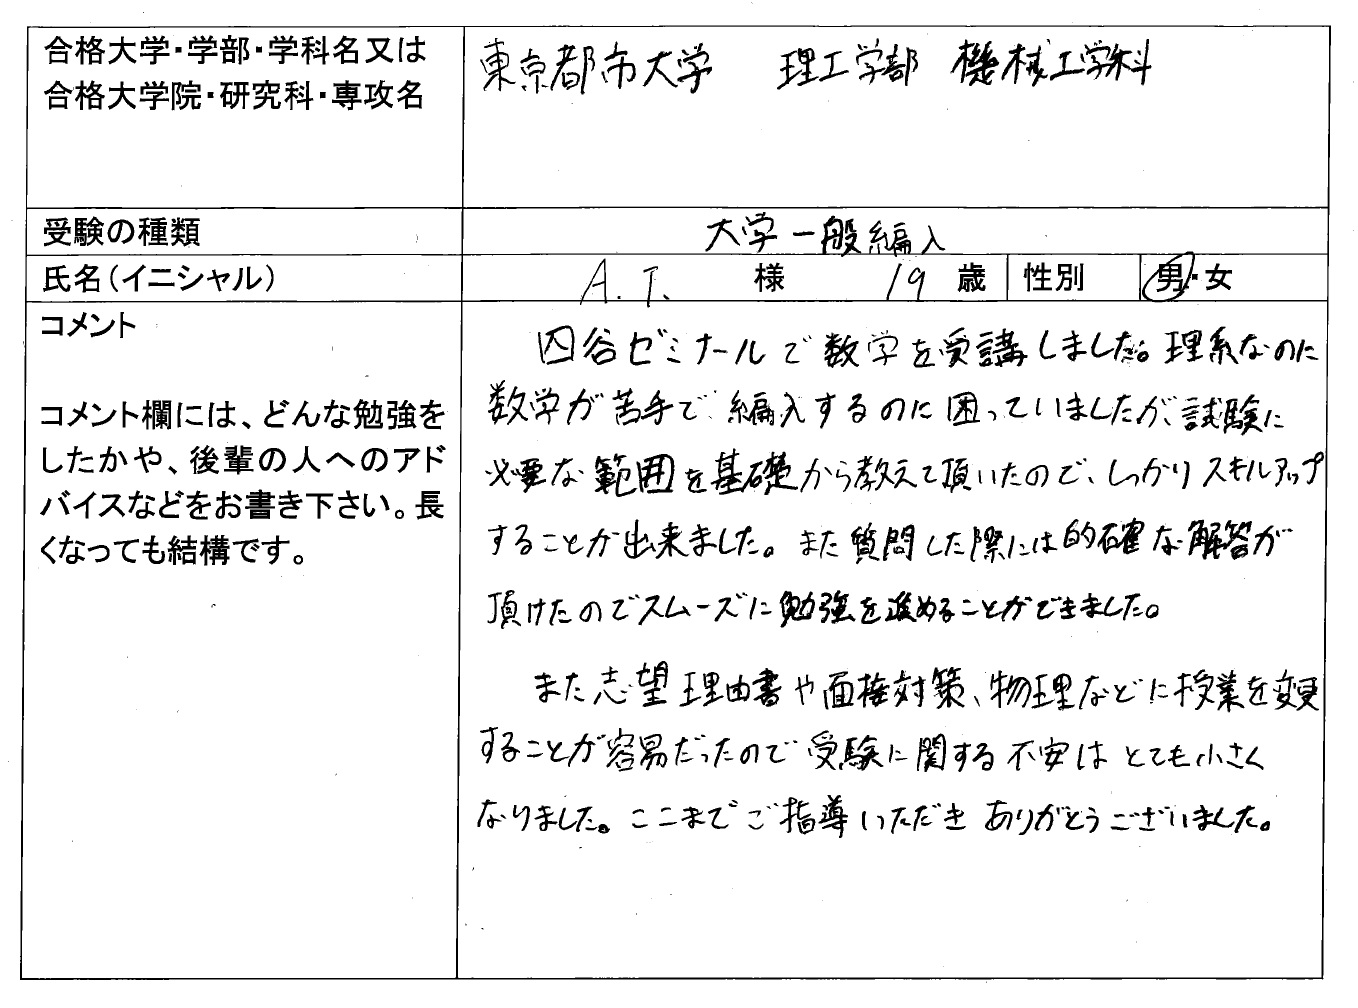 合格大学・学部・学科名又は
合格大学院・研究科・専攻名
東京都市大学 理工学部 機械工学科
受験の種類
大学一般編入
氏名(イニシャル)
A.T. 様 19 歳 性別 男・女
コメント
コメント欄には、どんな勉強を
したかや、後輩の人へのアド
バイスなどをお書き下さい。長
くなっても結構です。
四谷ゼミナールで数学を受講しました。理系なのに
数学が苦手で編入するのに困っていましたが、試験に
必要な範囲を基礎から教えて頂いたので、しっかりスキルアップ
することが出来ました。また質問した際には的確な解答が
頂けたのでスムーズに勉強を進めることができました。
また志望理由書や面接対策、物理などに授業を変更
することが容易だったので受験に関する不安はとても小さく
なりました。ここまでご指導いただきありがとうございました。